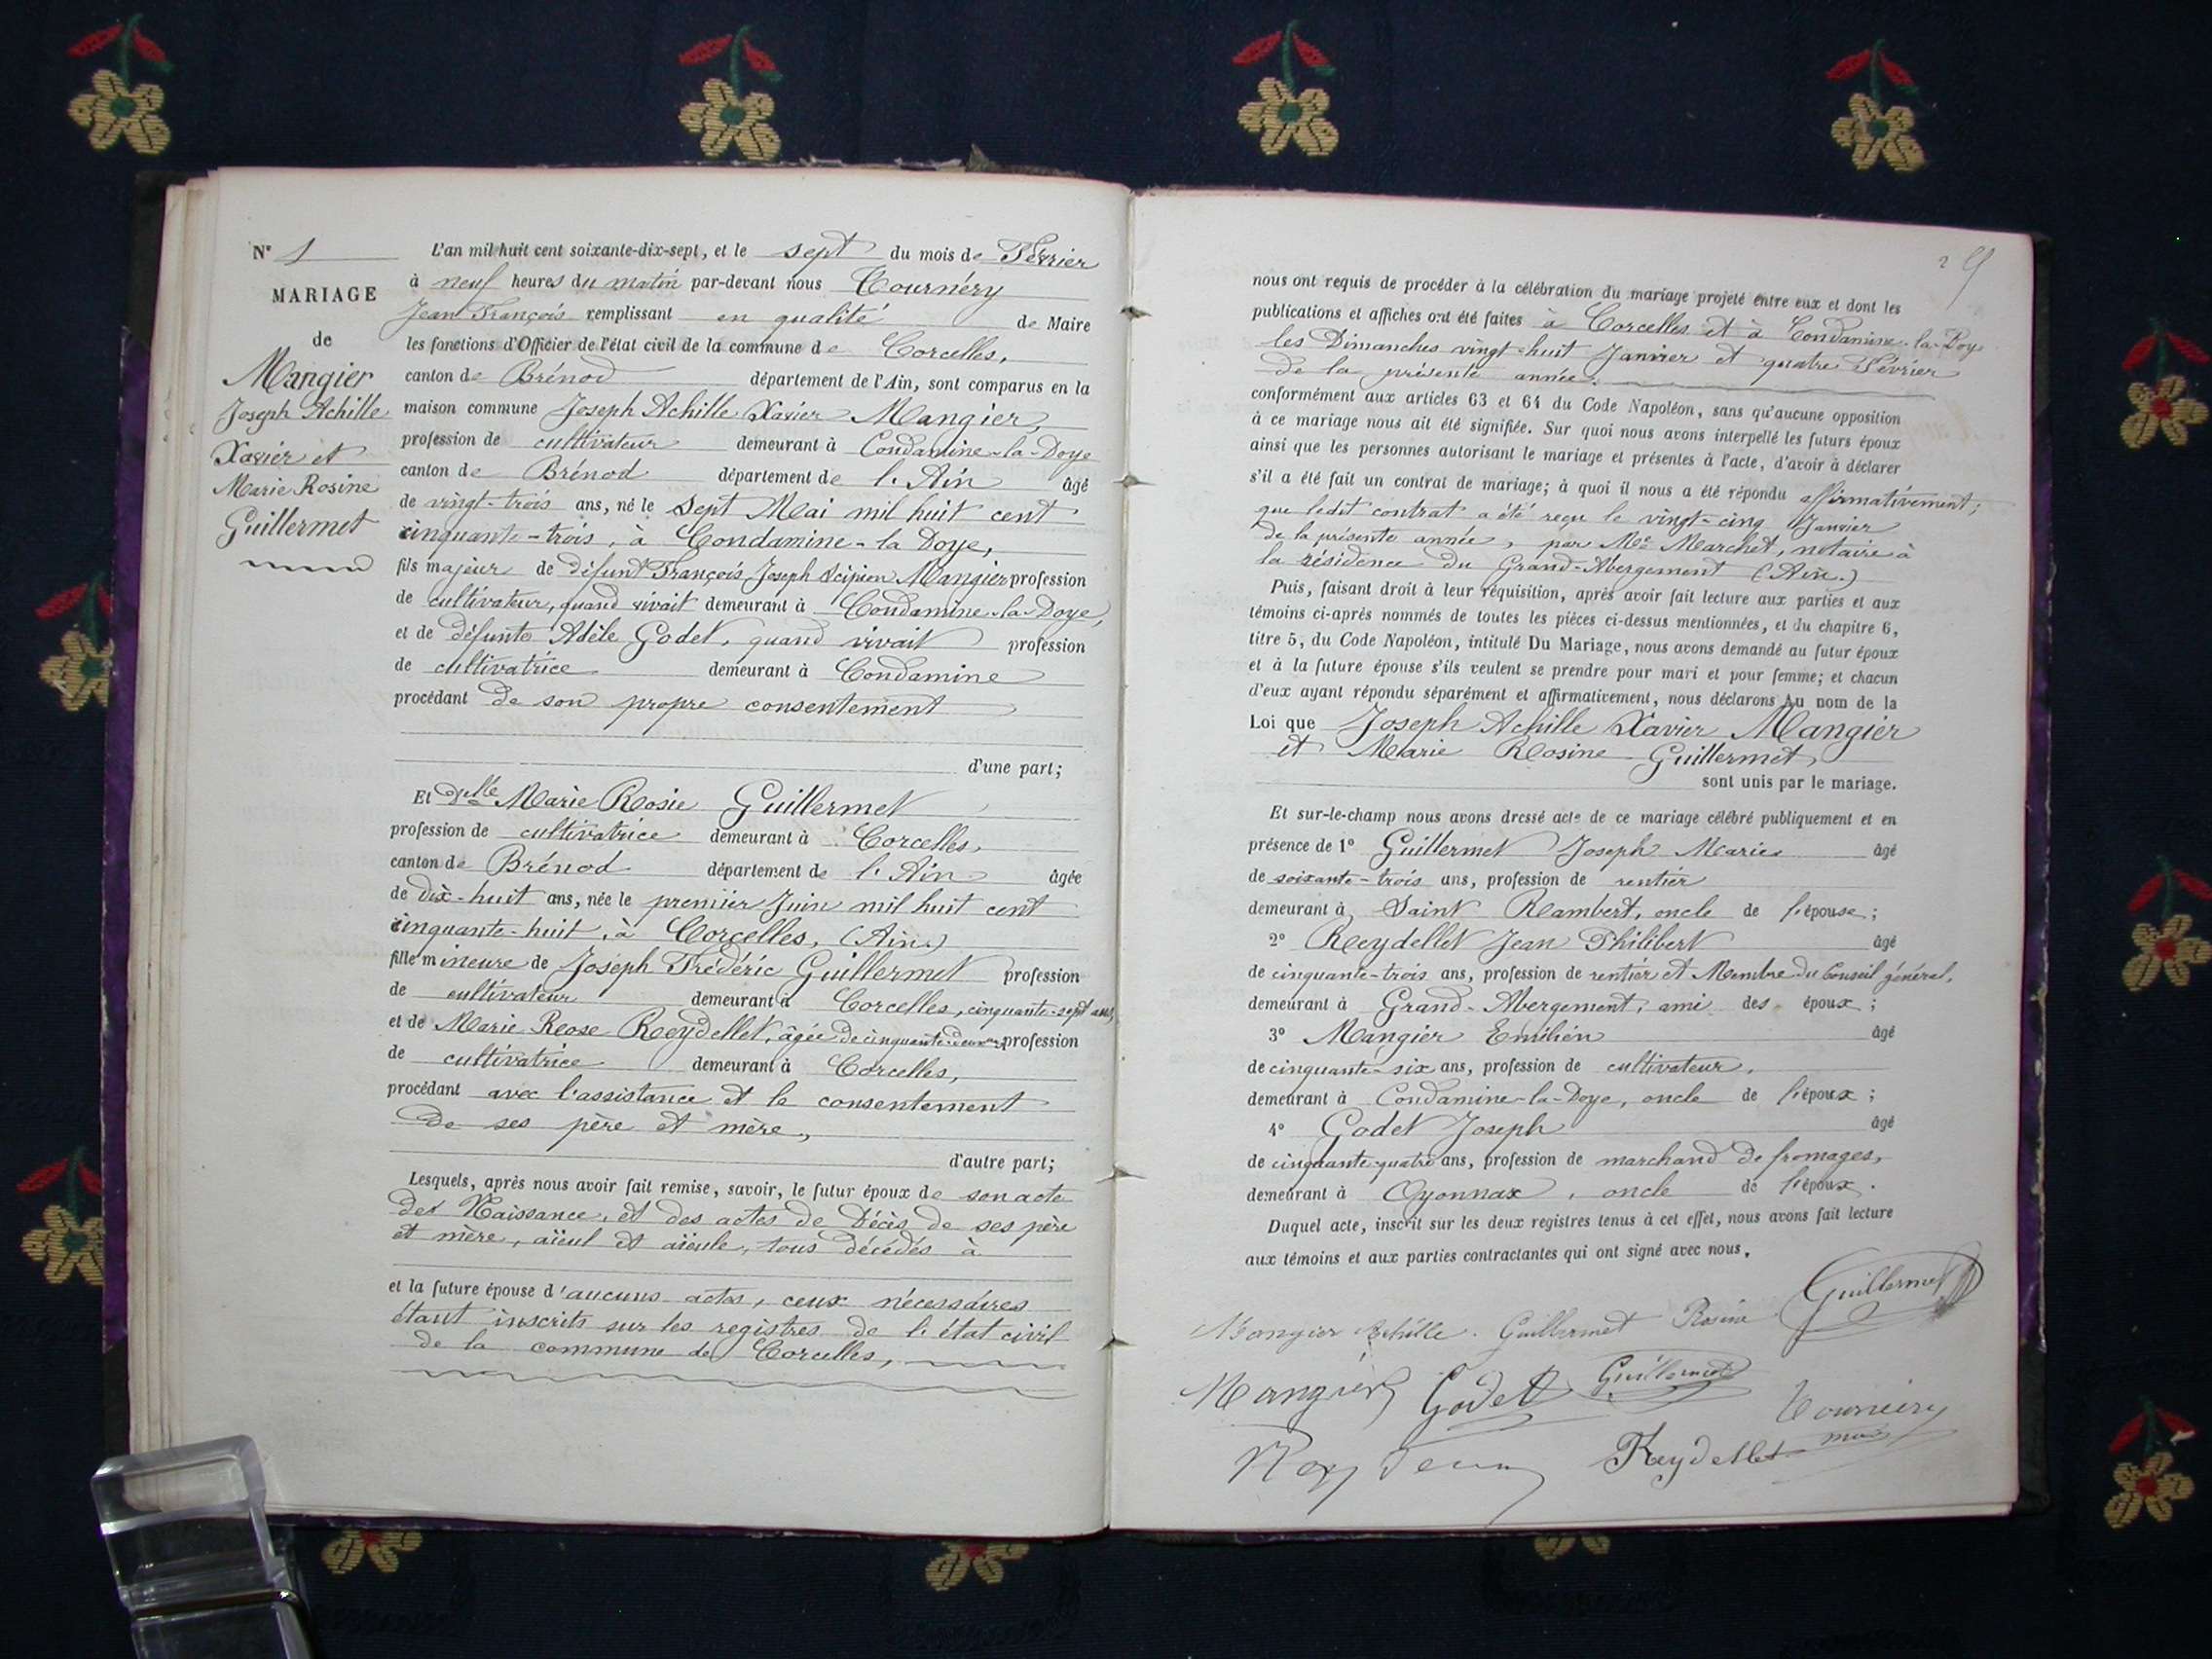 N° 1
MARIAGE
de
Mangier
Joseph Achille
Xavier et
Marie Rosine
Guillermet
L'an mil huit cent soixante-dix-sept, et le sept du mois de Février
à neuf heures du matin par-devant nous Tournéry
Jean François remplissant en qualité de Maire
les fonctions d'Officier de l'état civil de la commune de Corcelles,
canton de Brénod département de l'Ain, sont comparus en la
maison commune Joseph Achille Xavier Mangier,
profession de cultivateur demeurant à Condamine-la-Doye
canton de Brénod département de l'Ain âgé
de vingt-trois ans, né le sept Mai mil huit cent
cinquante-trois, à Condamine-la Doye,
fils majeur de défunt François Joseph Scipion Mangier profession
de cultivateur, quand vivait demeurant à Condamine-la-Doye,
et de défunte Adèle Godet, quand vivait profession
de cultivatrice demeurant à Condamine
procédant de son propre consentement
d'une part;
Et Delle Marie Rosie Guillermet
profession de cultivatrice demeurant à Corcelles,
canton de Brénod département de l'Ain âgée
de dix-huit ans, née le premier Juin mil huit cent
cinquante-huit, à Corcelles, (Ain.)
fille mineure de Joseph Frédéric Guillermet profession
de cultivateur demeurant à Corcelles, cinquante-sept ans,
et de Marie Rose Reydellet, âgée de cinquante-deux ans profession
de cultivatrice demeurant à Corcelles,
procédant avec l'assistance et le consentement
de ses père et mère,
d'autre part;
Lesquels, après nous avoir fait remise, savoir, le futur époux de son acte
de Naissance, et des actes de Décès de ses père
et mère, aïeul et aïeule, tous décédés à
et la future épouse d'aucuns actes, ceux nécessaires
étant inscrits sur les registres de l'état civil
de la commune de Corcelles,
nous ont requis de procéder à la célébration du mariage projeté entre eux et dont les
publications et affiches ont été faites à Corcelles et à Condamine-la-Doy
les Dimanches vingt-huit Janvier et quatre Février
de la présente année.
conformément aux articles 63 et 64 du Code Napoléon, sans qu'aucune opposition
à ce mariage nous ait été signifiée. Sur quoi nous avons interpellé les futurs époux
ainsi que les personnes autorisant le mariage et présentes à l'acte, d'avoir à déclarer
s'il a été fait un contrat de mariage; à quoi il nous a été répondu affirmativement;
que ledit contrat a été reçu le vingt-cinq Janvier
de la présente année, par Me Marchet, notaire à
la résidence du Grand-Abergement (Ain.)
Puis, faisant droit à leur réquisition, après avoir fait lecture aux parties et aux
témoins ci-après nommés de toutes les pièces ci-dessus mentionnées, et du chapitre 6,
titre 5, du Code Napoléon, intitulé Du Mariage, nous avons demandé au futur époux
et à la future épouse s'ils veulent se prendre pour mari et pour femme; et chacun
d'eux ayant répondu séparément et affirmativement, nous déclarons Au nom de la
Loi que Joseph Achille Xavier Mangier
et Marie Rosine Guillermet,
sont unis par le mariage.
Et sur-le-champ nous avons dressé acte de ce mariage célébré publiquement et en
présence de 1° Guillermet Joseph Marie âgé
de soixante-trois ans, profession de rentier
demeurant à Saint Rambert, oncle de l'épouse;
2° Reydellet Jean Philibert âgé
de cinquante-trois ans, profession de rentier et Membre du Conseil général,
demeurant à Grand-Abergement, ami des époux;
3° Mangier Emilien âgé
de cinquante-six ans, profession de cultivateur,
demeurant à Condamine-la-Doye, oncle de l'époux;
4° Godet Joseph âgé
de cinquante-quatre ans, profession de marchand de fromages,
demeurant à Oyonnax, oncle de l'époux.
Duquel acte, inscrit sur les deux registres tenus à cet effet, nous avons fait lecture
aux témoins et aux parties contractantes qui ont signé avec nous.
Mangier Achille. Guillermet Rosine Guillermet
Mangier Godet Guillermet
Tournéry
Reydellet